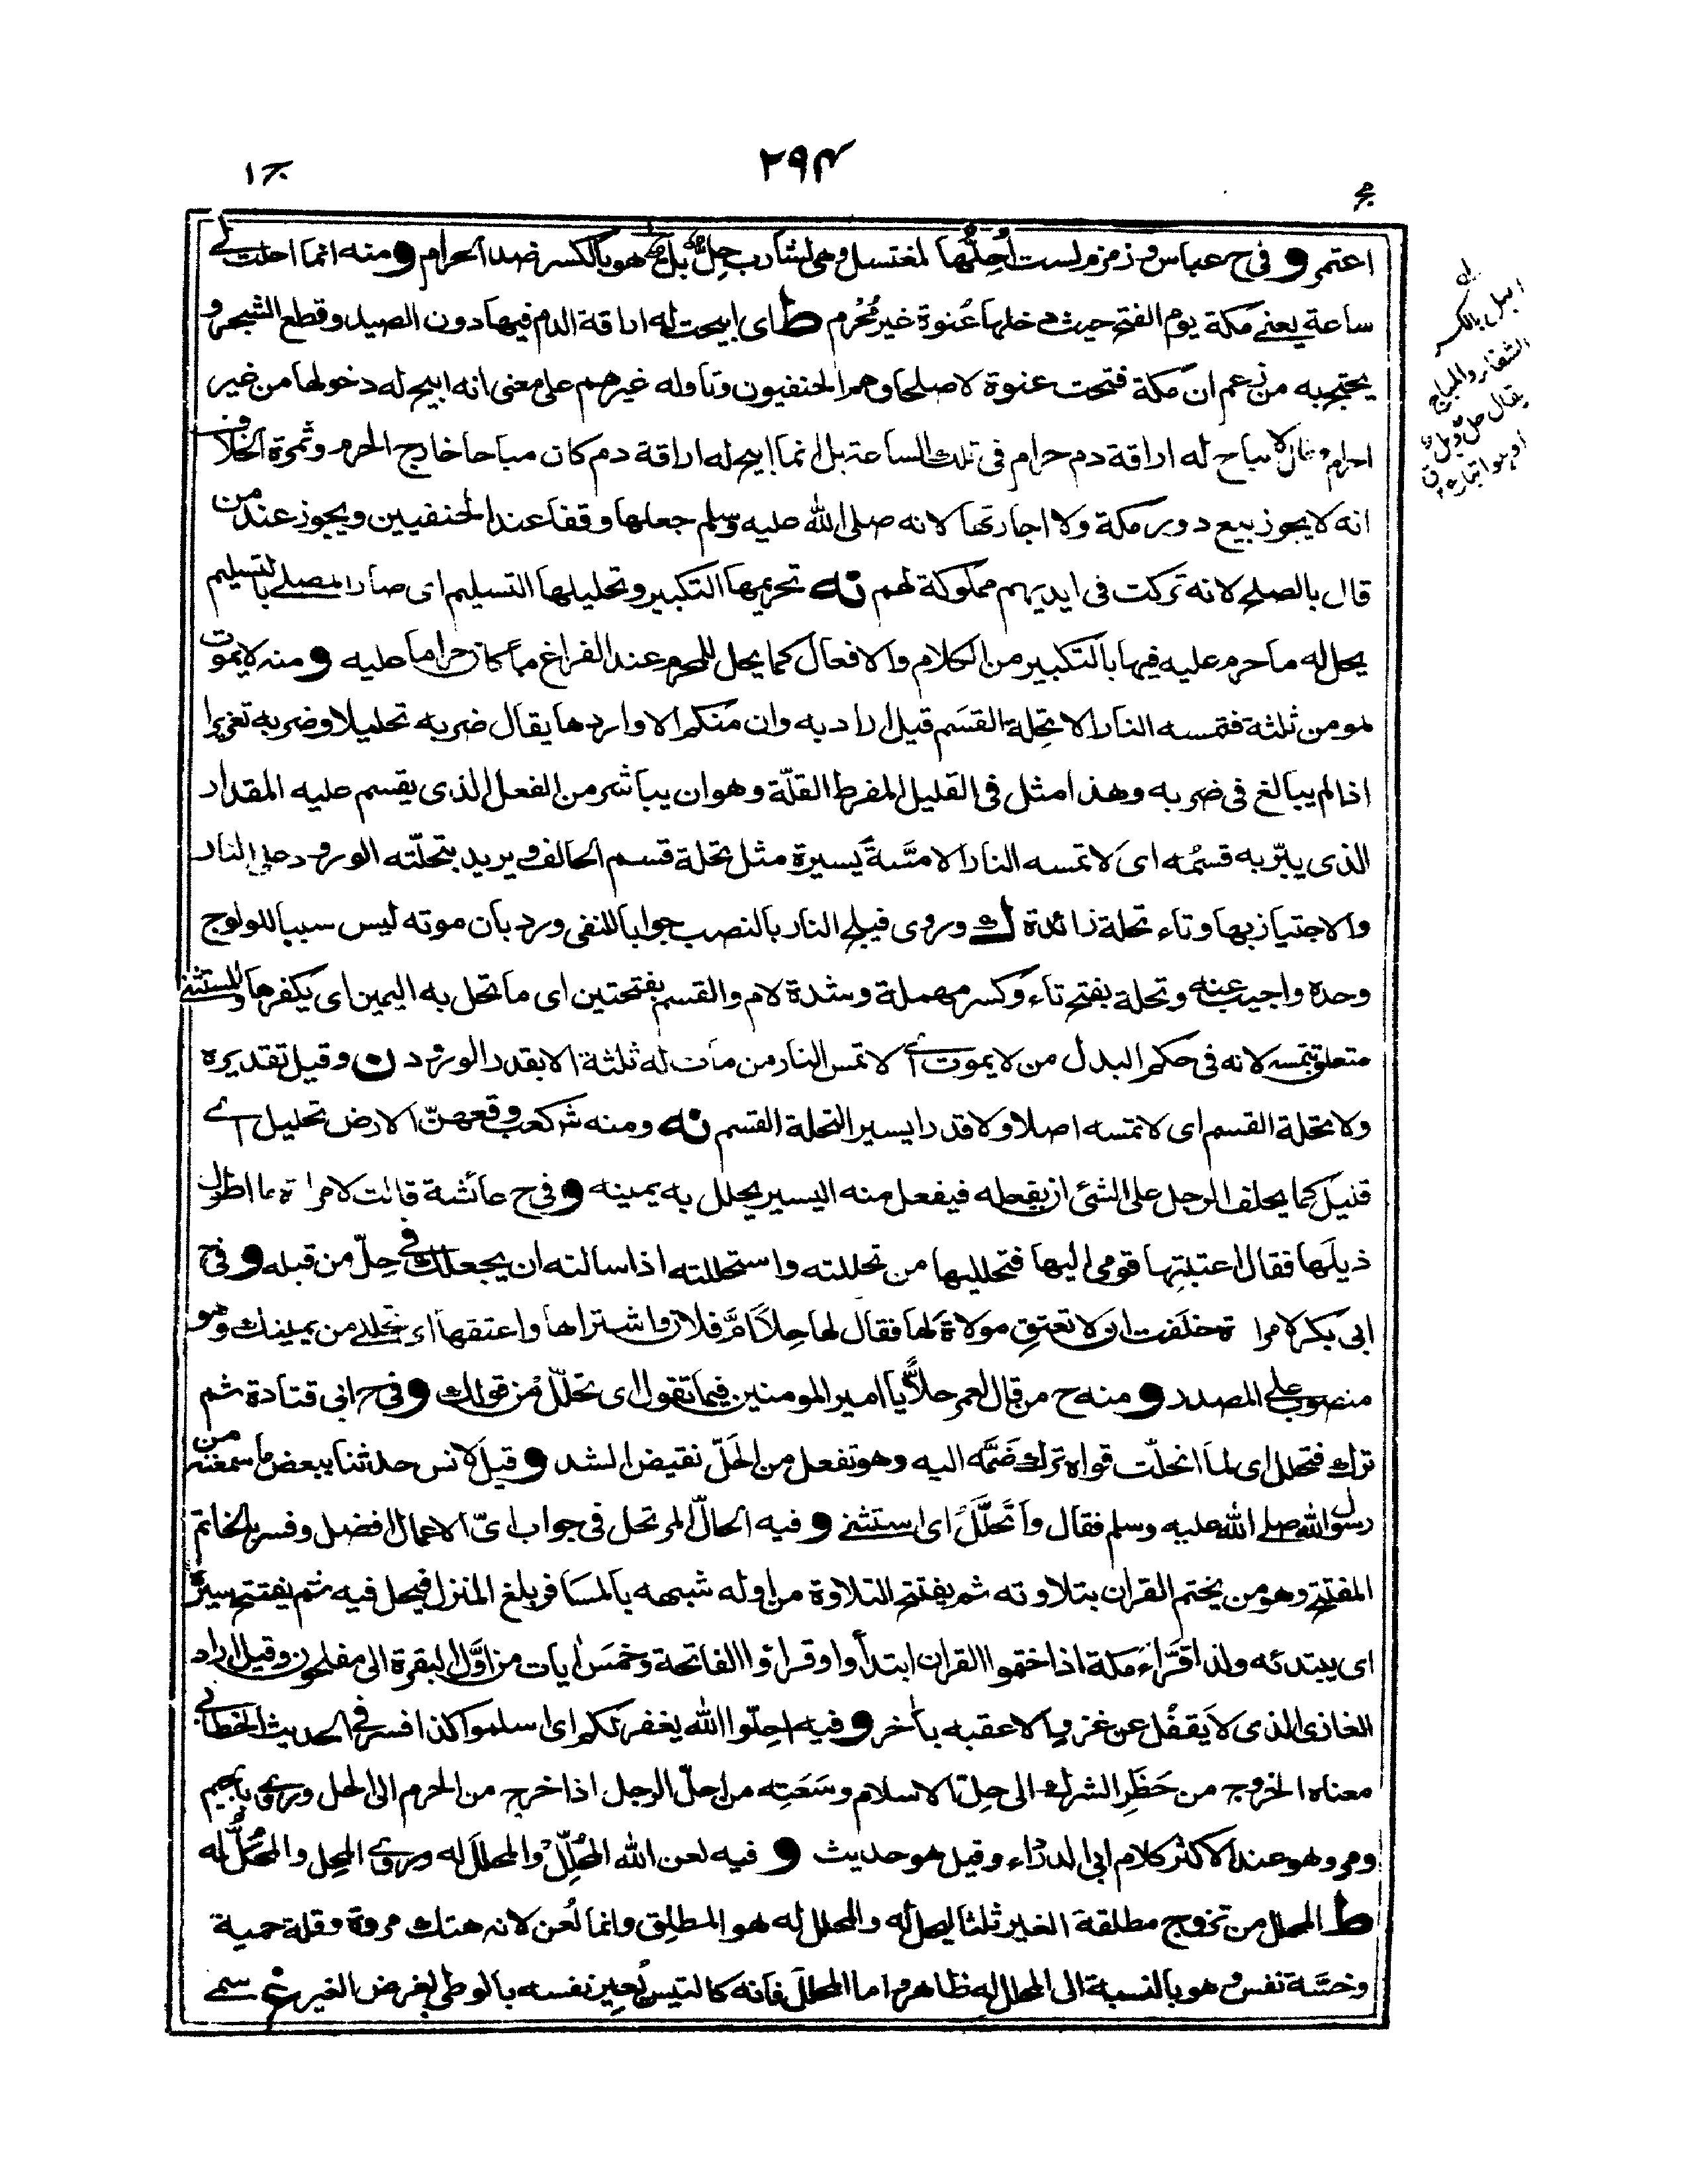 ج ١
٢٩٤
اعتمر و فى ح عباس و زمزم لست احلها لمغتسل وهى لشارب حل وبل هو بالكسر ضد الحرام و منه انما احلت لى
ساعة يعنى مكة يوم الفتح حيث دخلها عنوة غير محرم ط اى ابيحت له اراقة الدم فيها دون الصيد وقطع الشجر و
يحتج به من زعم ان مكة فتحت عنوة لا صلحا وهم الحنفيون وتاوله غيرهم على معنى انه ابيح له دخولها من غير
احرام وقال لا يباح له اراقة دم حرام فى تلك الساعة بل انما ابيح له اراقة دم كان مباحا خارج الحرم وثمرة الخلاف
انه لا يجوز بيع دور مكة ولا اجارتها لانه صلى الله عليه وسلم جعلها وقفا عند الحنفيين ويجوز عند من
قال بالصلح لانه تركت فى ايديهم مملوكة لهم نه تحريمها التكبير وتحليلها التسليم اى صار المصلى بالتسليم
يحل له ما حرم عليه فيها بالتكبير من الكلام والافعال كما يحل للمحرم عند الفراغ ما كان حراما عليه و منه لا يموت
لمومن ثلثة فتمسه النار الا تحلة القسم قيل اراد به وان منكم الا واردها يقال ضربه تحليلا وضربه تعزيرا
اذا لم يبالغ فى ضربه وهذا مثل فى القليل المفرط القلة وهو ان يباشر من الفعل الذى يقسم عليه المقدار
الذى يبر به قسمه اى لا تمسه النار الا مسة يسيرة مثل تحلة قسم الحالف ويريد بتحلته الورود على النار
والاجتياز بها وتاء تحلة زائدة ك وروى فيلج النار بالنصب جوابا للنفى ورد بان موته ليس سببا للولوج
وحده واجيب عنه وتحلة بفتح تاء وكسر مهملة وشدة لام والقسم بفتحتين اى ما تحل به اليمين اى يكفرها والمستثنى
متعلق بتمسه لانه فى حكم البدل من لا يموت اى لا تمس النار من مات له ثلثة الا بقدر الورود ن وقيل تقديره
ولا تحلة القسم اى لا تمسه اصلا ولا قدرا يسيرا لتحلة القسم نه ومنه شر كعب وقعهن الارض تحليل اى
قليل كما يحلف الرجل على الشئ ان يفعله فيفعل منه اليسير يحلل به يمينه و فى ح عائشة قالت لامراة ما اطول
ذيلها فقال اغتبتها قومى اليها فتحلليها من تحللته واستحللته اذا سالته ان يجعلك فى حل من قبله و فى ح
ابى بكر لامراة حلفت ان لا تعتق مولاة لها فقال لها حلا ام فلان واشتراها واعتقها اى تحللى من يمينك وهو
منصوب على المصدر و منه ح من قال لعمر حلا يا امير المومنين فيما تقول اى تحلل من قولك و فى ح ابى قتادة ثم
ترك فتحلل اى لما انحلت قواه ترك ضمه اليه وهو تفعل من الحل نقيض الشد و قيل لانس حدثنا ببعض ما سمعته من
رسول الله صلى الله عليه وسلم فقال وا تحلل اى استثنى و فيه الحال المرتحل فى جواب اى الاعمال افضل وفسر بالخاتم
المفتتح وهو من يختم القران بتلاوته ثم يفتتح التلاوة من اوله شبهه بالمسافر يبلغ المنزل فيحل فيه ثم يفتتح سيره
اى يبتدئه ولذا قراء مكة اذا ختموا القران ابتدأوا وقرأوا الفاتحة وخمس ايات من اول البقرة الى مفلحون وقيل اراد
الغازى الذى لا يقفل عن غزو الا عقبه بآخر و فيه احلوا الله يغفر لكم اى اسلموا كذا فسر فى الحديث الخطابى
معناه الخروج من حظر الشرك الى حل الاسلام وسعته من احل الرجل اذا خرج من الحرم الى الحل وروى بالجيم
ومر وهو عند الاكثر كلام ابى الدرداء وقيل هو حديث و فيه لعن الله المحلل والمحلل له وروى المحل والمحل له
ط المحلل من تزوج مطلقة الغير ثلثا ليحل له والمحلل له هو المطلق وانما لعن لانه هتك مروة وقلة حمية
وخسة نفس و هو بالنسبة الى المحلل له ظاهر واما المحلل فانه كالتيس يعير نفسه بالوطى لغرض الغير غ سمى
ابل بالكسر
الشفاء والمباح
يقال حل وبل